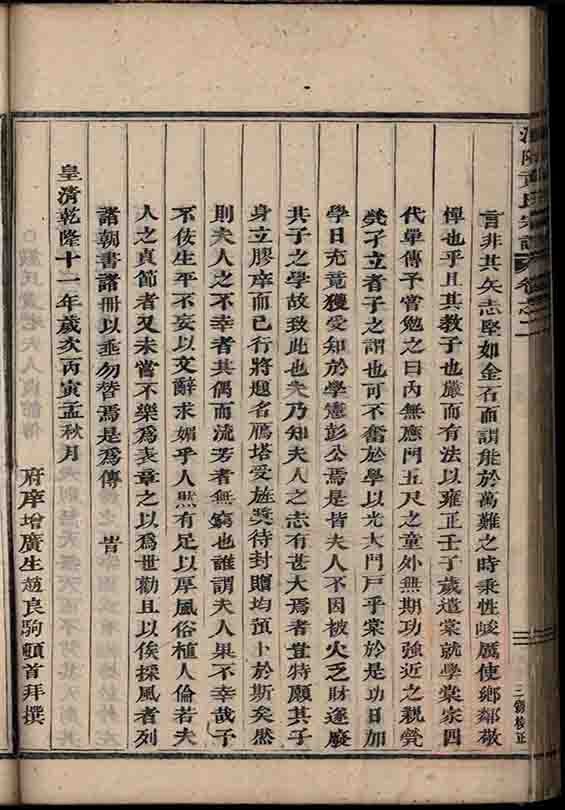 黃氏宗譜 卷之二
言非其矢志堅如金石而謂能於萬難之時秉性峻厲使鄉鄰敬
憚也乎且其教子也嚴而有法以雍正壬子歲遣棠就學棠家四
代單傳予嘗勉之曰內無應門五尺之童外無期功強近之親煢
煢孑立者子之謂也可不奮於學以光大門戶乎棠於是功日加
學日充竟獲受知於學憲彭公焉是皆夫人不因被火乏財遂廢
其子之學故致此也夫乃知夫人之志有甚大焉者豈特願其子
身立膠庠而已行將題名鴈塔受旌獎待封贈均預卜於斯矣然
則夫人之不幸者其偶而流芳者無窮也誰謂夫人果不幸哉予
不佞生平不妄以文辭求媚乎人然有足以厚風俗植人倫若夫
人之貞節者又未嘗不樂為表章之以為世勸且以俟採風者列
諸朝書諸冊以垂勿替焉是為傳 旹
皇清乾隆十一年歲次丙寅孟秋月
府庠增廣生趙良駒頓首拜撰